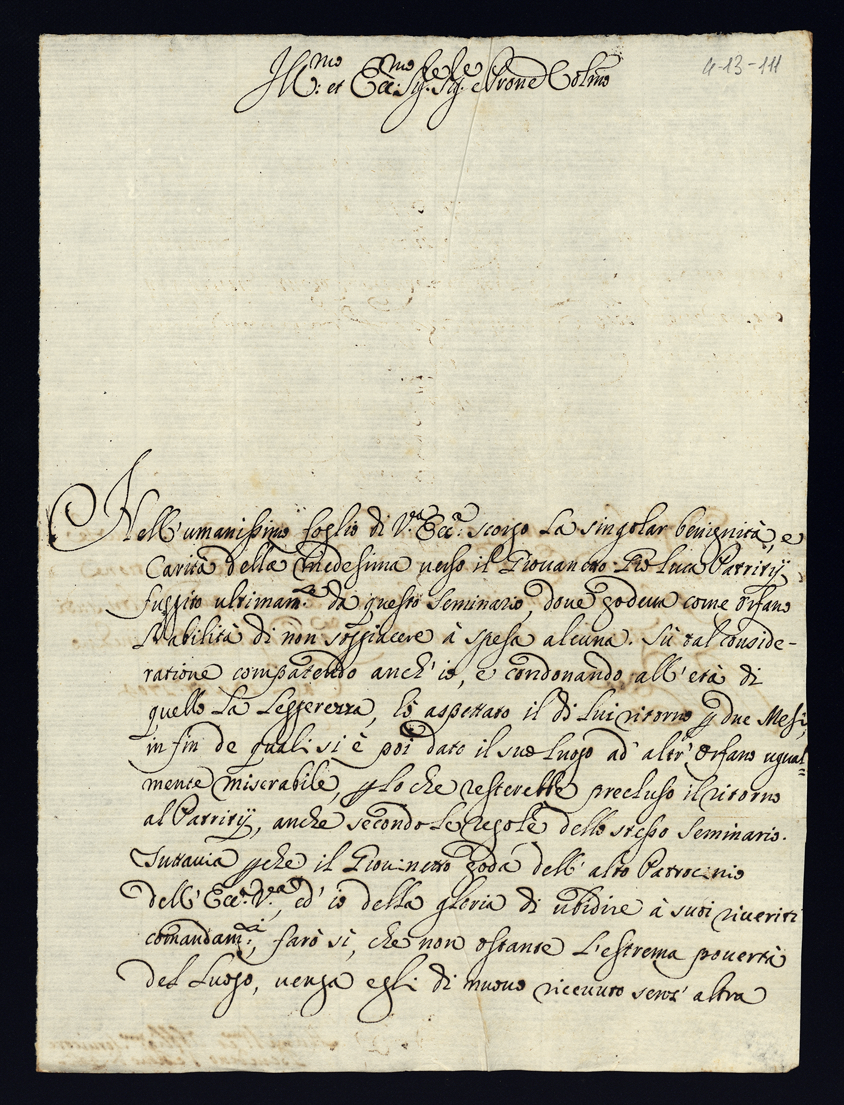 Ill:mo et Ecc:mo Sig:re Sig:re e Prone Colmo
4-13-111
Nell' umanissimo foglio di V.a Ecc.a scorgo la singolar benignità, e
Carità della medesima verso il Giovanetto Pio Luca Patritij
fuggito ultimam.te da questo Seminario, dove godeva come Orfano
l'abilità di non soggiacere à spesa alcuna. Sù tal conside-
ratione compatendo anch' io, e condonando all' età di
quello la leggerezza, hò aspettato il di lui ritorno p due Mesi,
in fin de quali si è poi dato il suo luogo ad' altr' Orfano ugual=
mente miserabile, p lo che resterebbe precluso il ritorno
al Patritij, anche secondo le regole dello stesso Seminario.
Tuttavia pche il Giovinetto goda dell' alto Patrocinio
dell' Ecc.a V.a, ed' io della gloria di ubidire à suoi riveriti
comandam.ti, farò sì, che non ostante l'estrema povertà
del Luogo, venga egli di nuovo ricevuto senz' altra